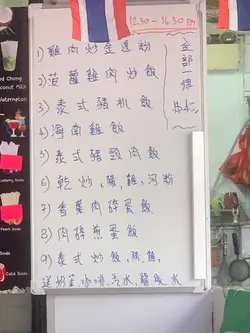 12.30 - 16.30 pm
1) 雞肉炒金邊粉
2) 菠蘿雞肉炒飯
3) 泰式豬扒飯
4) 海南雞飯
5) 泰式豬頸肉飯
6) 乾炒, 豬, 雞, 河粉
7) 香葉肉碎蛋飯
8) 肉碎煎蛋飯
9) 泰式炒飯, 豬, 雞
送奶茶, 咖啡, 汽水, 龍眼水
全部一律
$45
Coconut Milk
Watermelon
Soda
Soda
Cola Soda